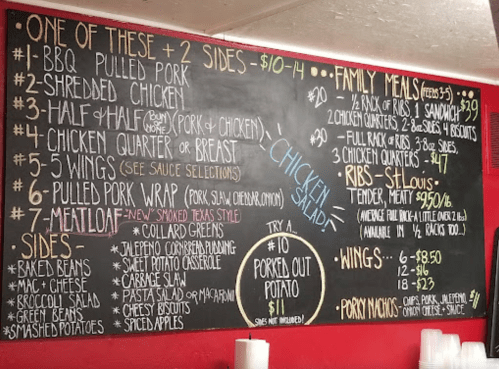 • ONE OF THESE + 2 SIDES - $10-14 •
#1- BBQ PULLED PORK
#2- SHREDDED CHICKEN
#3- HALF & HALF (BUN OR NONE) (PORK & CHICKEN)
#4- CHICKEN QUARTER OR BREAST
#5- 5 WINGS (SEE SAUCE SELECTIONS)
#6- PULLED PORK WRAP (PORK, SLAW, CHEDDAR, ONION)
#7- MEATLOAF - NEW SMOKED TEXAS STYLE
• SIDES -
* BAKED BEANS
* MAC + CHEESE
* BROCCOLI SALAD
* GREEN BEANS
* SMASHED POTATOES
* COLLARD GREENS
* JALEPENO CORNBREAD PUDDING
* SWEET POTATO CASSEROLE
* CABBAGE SLAW
* PASTA SALAD OR MACARONI
* CHEESY BISCUITS
* SPICED APPLES
CHICKEN
SALAD!
TRY A...
#10
PORKED OUT
POTATO
$11
SIDES NOT INCLUDED!
•• FAMILY MEALS (FEEDS 3-5) •
#20 - ½ RACK OF RIBS, 1 SANDWICH $39
2 CHICKEN QUARTERS, 2- 8oz. SIDES, 4 BISCUITS
#30 - FULL RACK OF RIBS, 3-8oz SIDES,
3 CHICKEN QUARTERS - $47
• RIBS - St. Louis •
TENDER, MEATY $9.50/lb.
(AVERAGE FULL RACK - A LITTLE OVER 2 lbs)
(AVAILABLE IN ½ RACKS TOO...)
• WINGS... 6 - $8.50
12 - $16
18 - $23
• PORKY NACHOS - CHIPS, PORK, JALEPENO, $11
ONION CHEESE + SAUCE